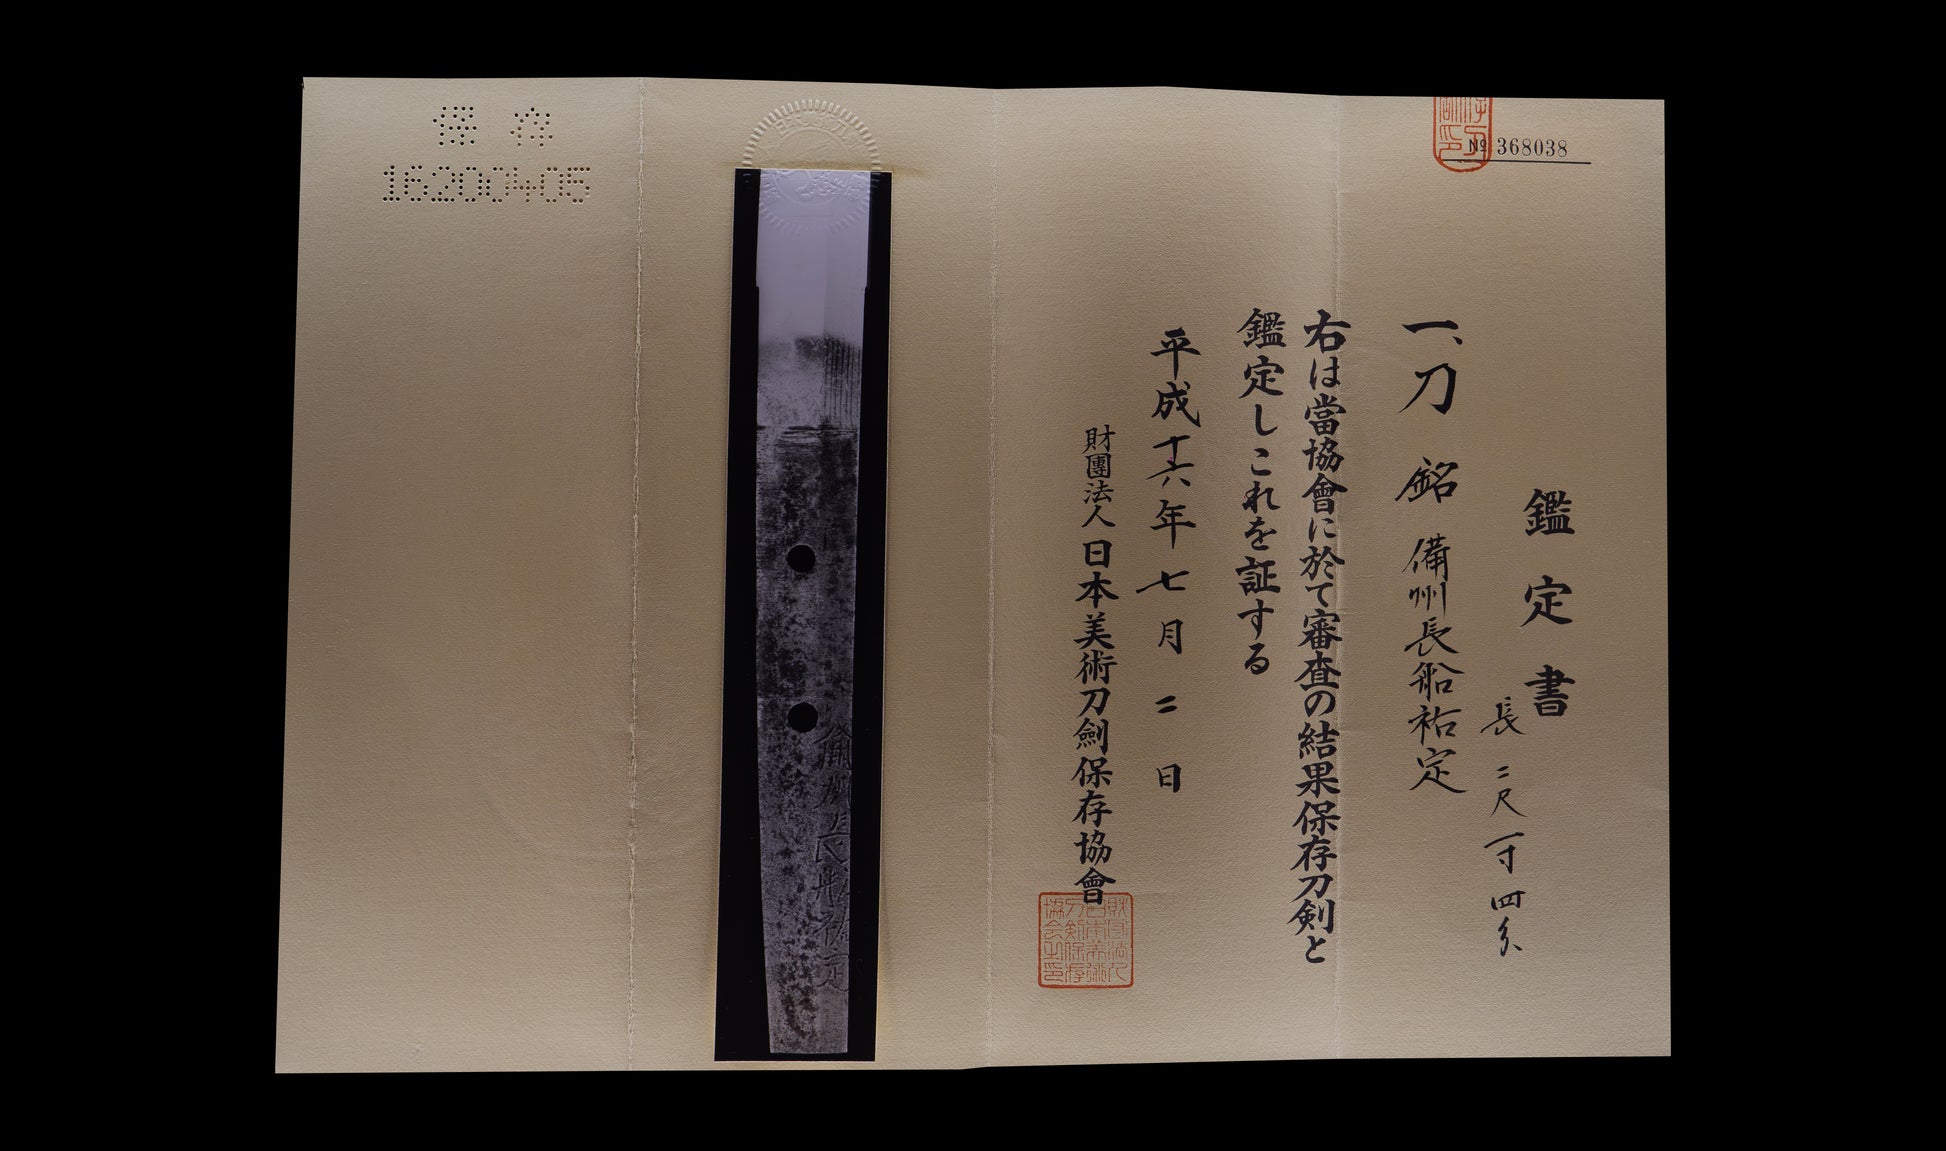 № 368038
鑑定書
長 二尺一寸四分
一、刀 銘 備州長船祐定
右は當協會に於て審査の結果保存刀剣と
鑑定しこれを証する
平成十六年七月二日
財團法人 日本美術刀劍保存協會
備州長船祐定
保存
16200405